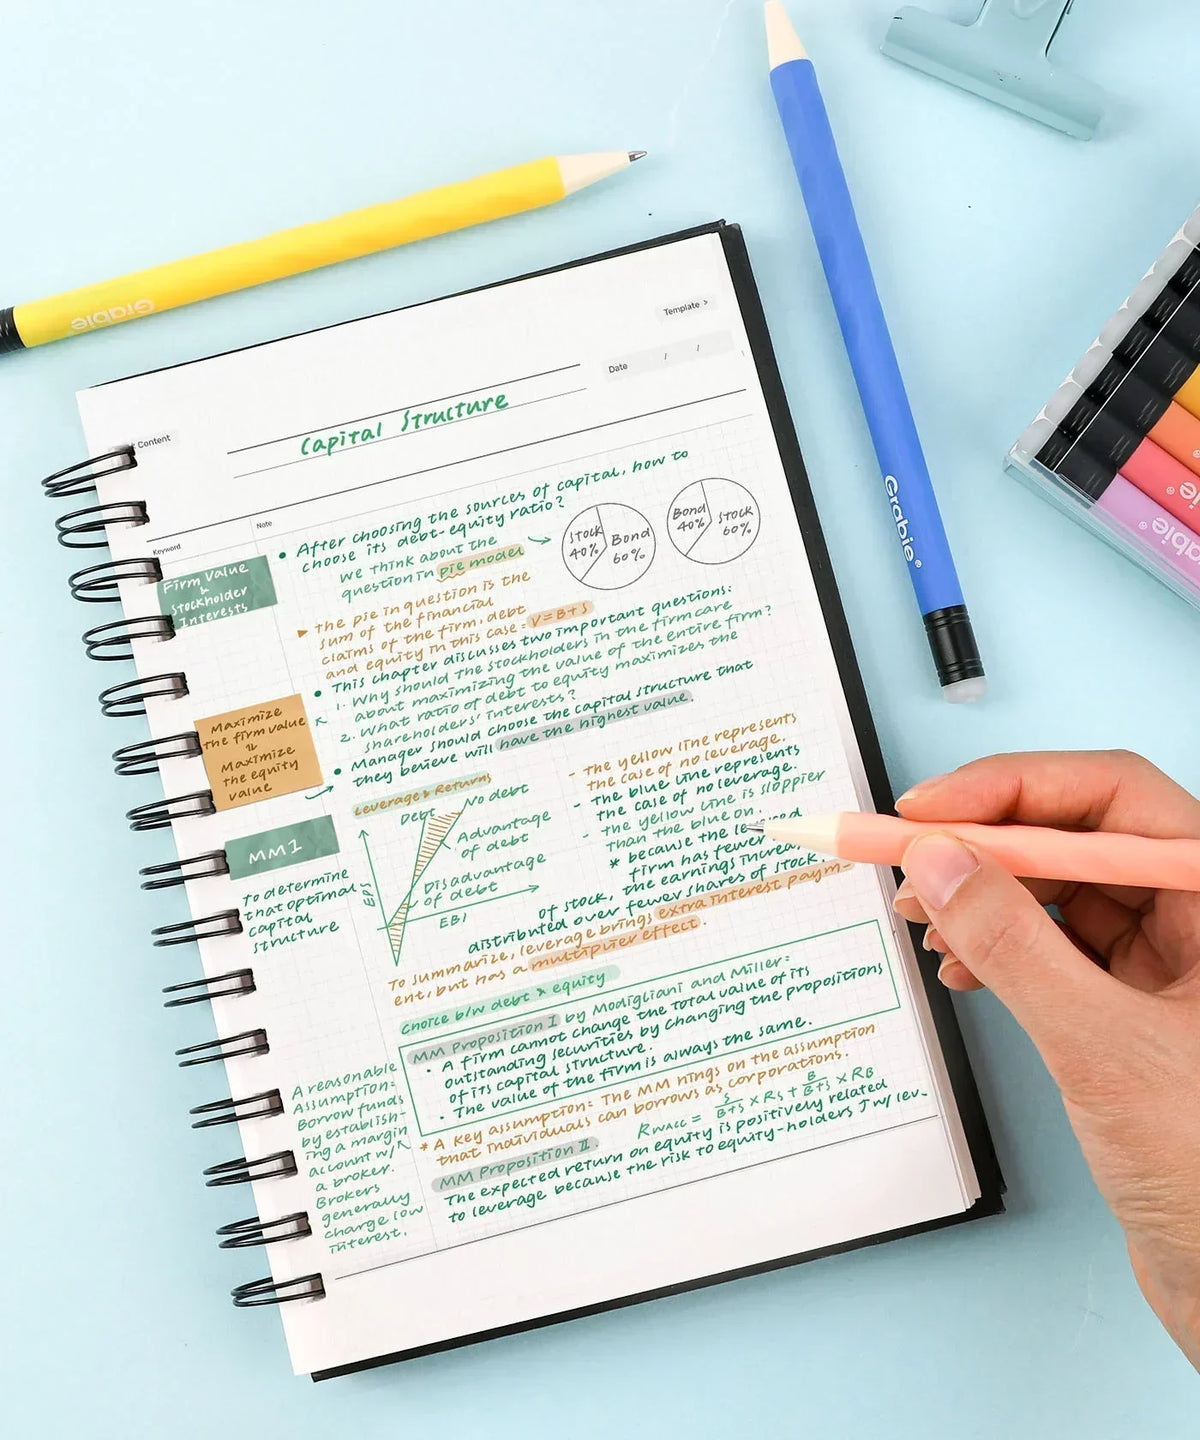 Grabie
Grabie®
Grabie®
Template >
Date / /
Content
Capital Structure
Keyword
Note
Firm Value
&
Stockholder
Interests
• After choosing the sources of capital, how to
choose its debt-equity ratio?
we think about the
question in pie model
Stock
40%
Bond
60%
Bond
40%
Stock
60%
The pie in question is the
sum of the financial
claims of the firm, debt
and equity in this case = V=B+S
• This chapter discusses two important questions:
1. Why should the stockholders in the firm care
about maximizing the value of the entire firm?
2. What ratio of debt to equity maximizes the
shareholders' interests?
• Manager should choose the capital structure that
they believe will have the highest value.
Maximize
the firm value
Maximize
the equity
value
Leverage & Returns
Debt
No debt
Advantage
of debt
Disadvantage
of debt
EBI
- The yellow line represents
the case of no leverage.
- the blue line represents
the case of no leverage.
- the yellow line is sloppier
than the blue on.
* because the
firm has fewer
the earnings
of stock,
distributed over fewer shares of stock.
To summarize, leverage brings extra interest paym-
ent, but has a multiplier effect.
MM1
to determine
that optimal
capital
structure
Choice b/w debt & equity
MM Proposition I by Modigliani and Miller:
• A firm cannot change the total value of its
outstanding securities by changing the propositions
of its capital structure.
• The value of the firm is always the same.
* A key assumption: The MM hings on the assumption
that individuals can borrows as corporations.
RWACC = S/B+S × RS + B/B+S × RB
MM Proposition II.
The expected return on equity is positively related
to leverage because the risk to equity-holders ↑ w/ lev.
A reasonable
Assumption:
Borrow funds
by establish-
ing a margin
account w/
a broker.
Brokers
generally
charge low
interest.